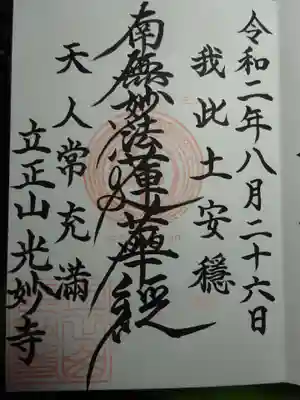 令和二年八月二十六日
我此土安穏
南無妙法蓮華経
天人常充満
立正山光妙寺